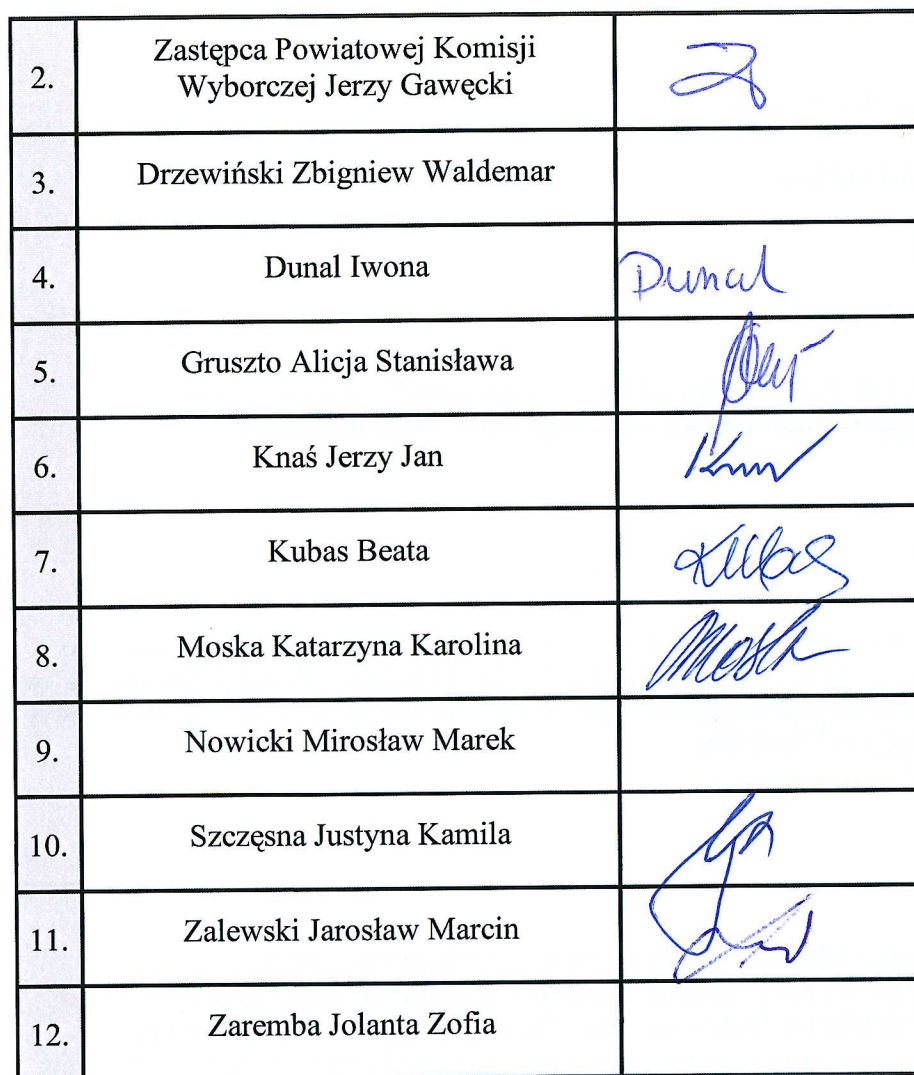 2.
Zastępca Powiatowej Komisji
Wyborczej Jerzy Gawęcki
3.
Drzewiński Zbigniew Waldemar
4.
Dunal Iwona
Dunal
5.
Gruszto Alicja Stanisława
6.
Knaś Jerzy Jan
7.
Kubas Beata
Kubas
8.
Moska Katarzyna Karolina
9.
Nowicki Mirosław Marek
10.
Szczęsna Justyna Kamila
11.
Zalewski Jarosław Marcin
12.
Zaremba Jolanta Zofia